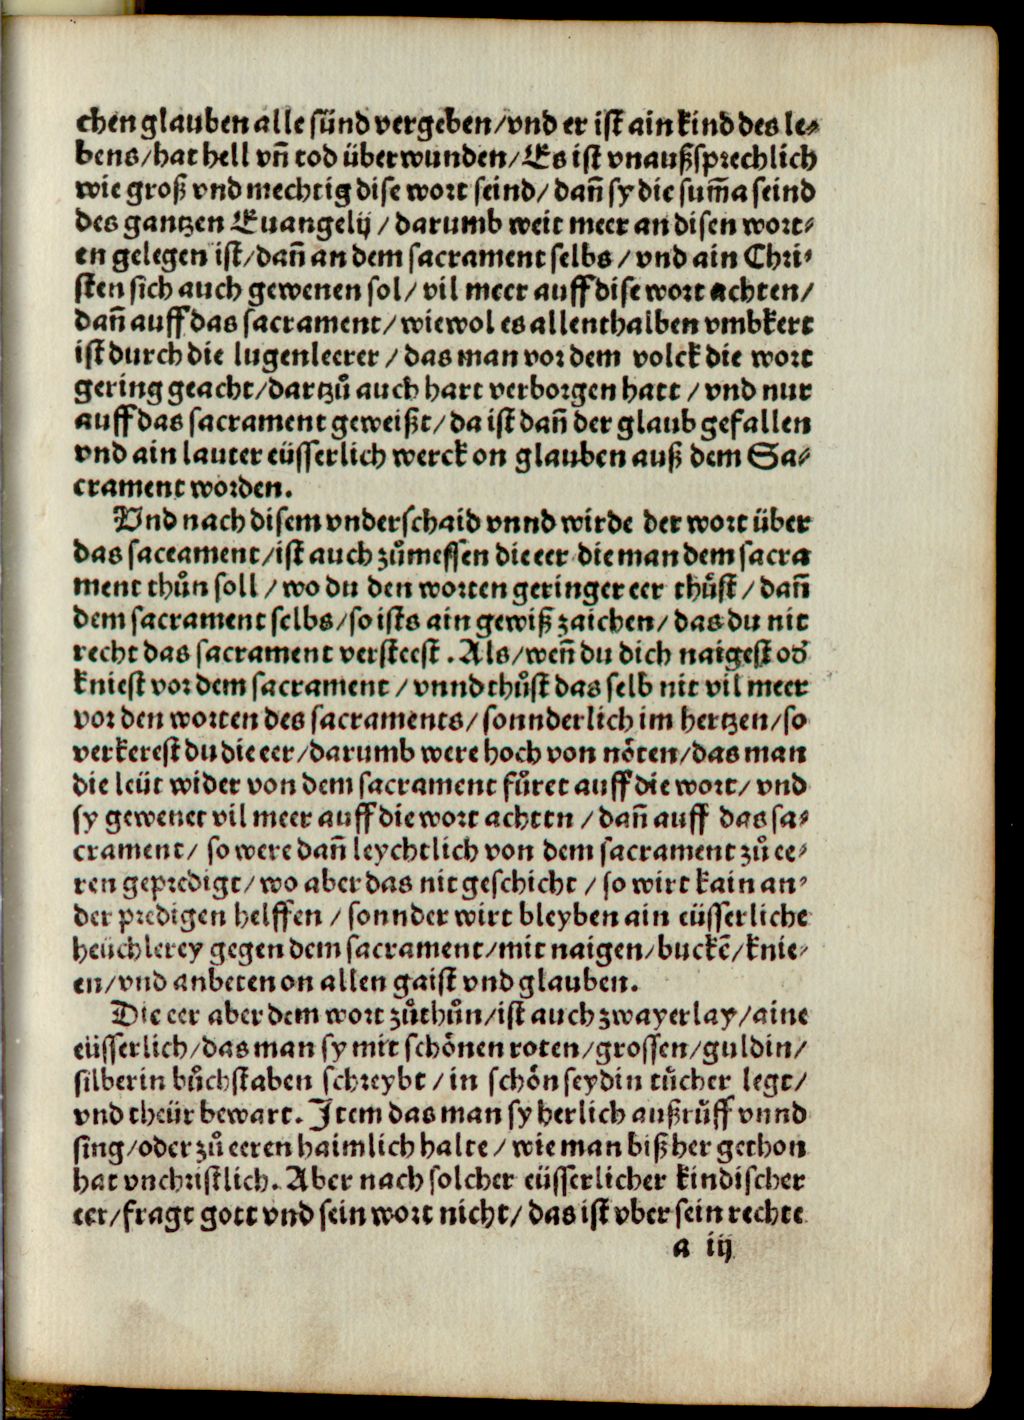 chen glauben alle sünd vergeben/vnd er ist ain kind des le⸗
bens/hat hell vñ tod überwunden/Es ist vnaußsprechlich
wie groß vnd mechtig dise wort seind/dañ sy die sum̃a seind
des gantzen Euangelij/darumb weit meer an disen wort⸗
en gelegen ist/dañ an dem sacrament selbs/vnd ain Chri⸗
sten sich auch gewenen sol/vil meer auff dise wort achten/
dañ auff das sacrament/wiewol es allenthalben vmbkert
ist durch die lugenleerer/das man vor dem volck die wort
gering geacht/dartzů auch hart verborgen hatt/vnd nur
auff das sacrament geweißt/da ist dañ der glaub gefallen
vnd ain lauter eüsserlich werck on glauben auß dem Sa⸗
crament worden.
Vnd nach disem vnderschaid vnnd wirde der wort über
das saceament/ist auch zůmessen die eer die man dem sacra
ment thůn soll/wo du den worten geringer eer thůst/dañ
dem sacrament selbs/so ists ain gewiß zaichen/das du nit
recht das sacrament versteest. Als/weñ du dich naigest od̕
kniest vor dem sacrament/vnnd thůst das selb nit vil meer
vor den worten des sacraments/sonnderlich im hertzen/so
verkerest du die eer/darumb were hoch von nöten/das man
die leüt wider von dem sacrament fůret auff die wort/vnd
sy gewenet vil meer auff die wort achten/dañ auff das sa⸗
crament/so were dañ leychtlich von dem sacrament zů ee⸗
ren gepredigt/wo aber das nit geschicht/so wirt kain an⸗
der predigen helffen/sonnder wirt bleyben ain eüsserliche
heüchlerey gegen dem sacrament/mit naigen/buckẽ/knie⸗
en/vnd anbeten on allen gaist vnd glauben.
Die eer aber dem wort zůthůn/ist auch zwayerlay/aine
eüsserlich/das man sy mit schönen roten/grossen/guldin/
silberin bůchstaben schreybt/in schön seydin tücher legt/
vnd theür bewart. Item das man sy herlich außrůff vnnd
sing/oder zů eeren haimlich halte/wie man bißher gethon
hat vnchristlich. Aber nach solcher eüsserlicher kindischer
eer/fragt gott vnd sein wort nicht/das ist vber sein rechte
a iij